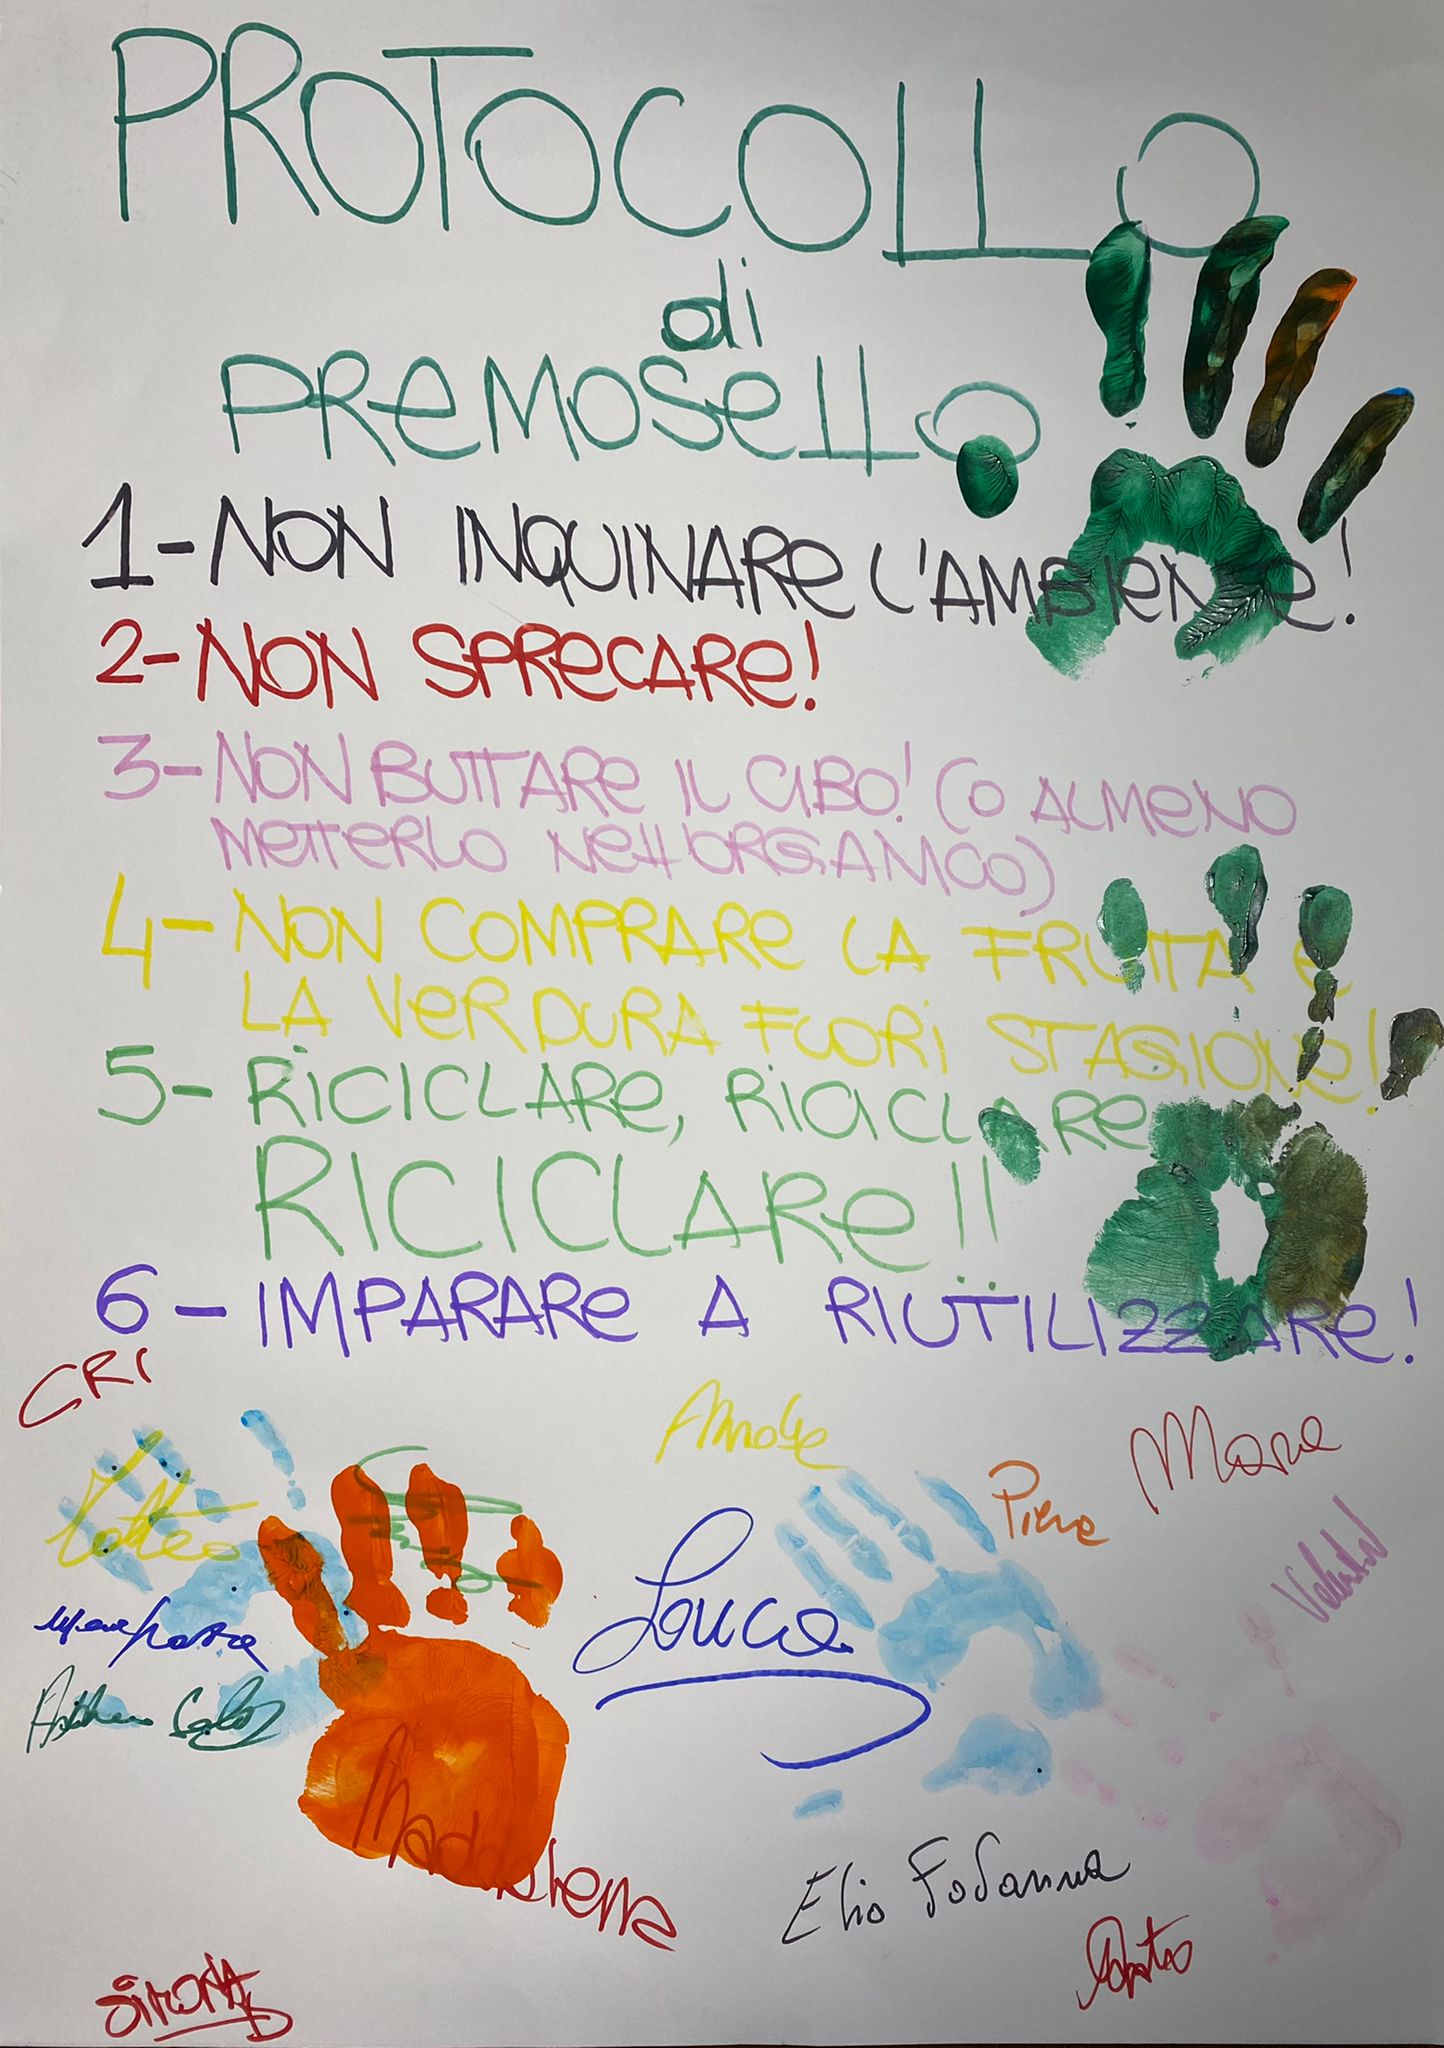 PROTOCOLLO
di
PREMOSELLO
1- NON INQUINARE L'AMBIENTE!
2- NON SPRECARE!
3- NON BUTTARE IL CIBO! (O ALMENO
METTERLO NELL'ORGANICO)
4- NON COMPRARE LA FRUTTA E
LA VERDURA FUORI STAGIONE!
5- RICICLARE, RICICLARE
RICICLARE!!
6- IMPARARE A RIUTILIZZARE!
CRI
Piera
Matteo
Luca
Maddalena
Elio Fovanna
SIMONA